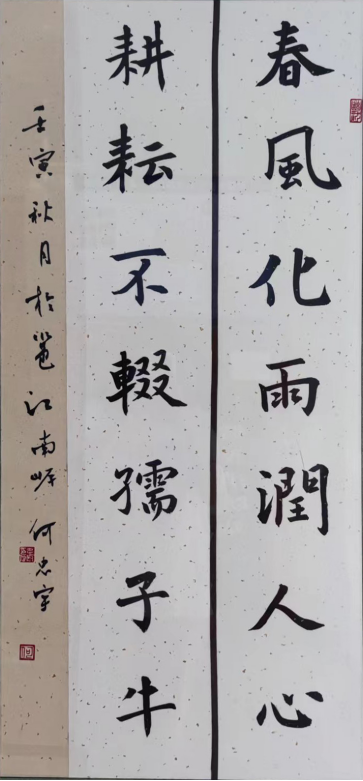 春風化雨潤人心
耕耘不輟孺子牛
壬寅秋月於邕江南岸何忠宇